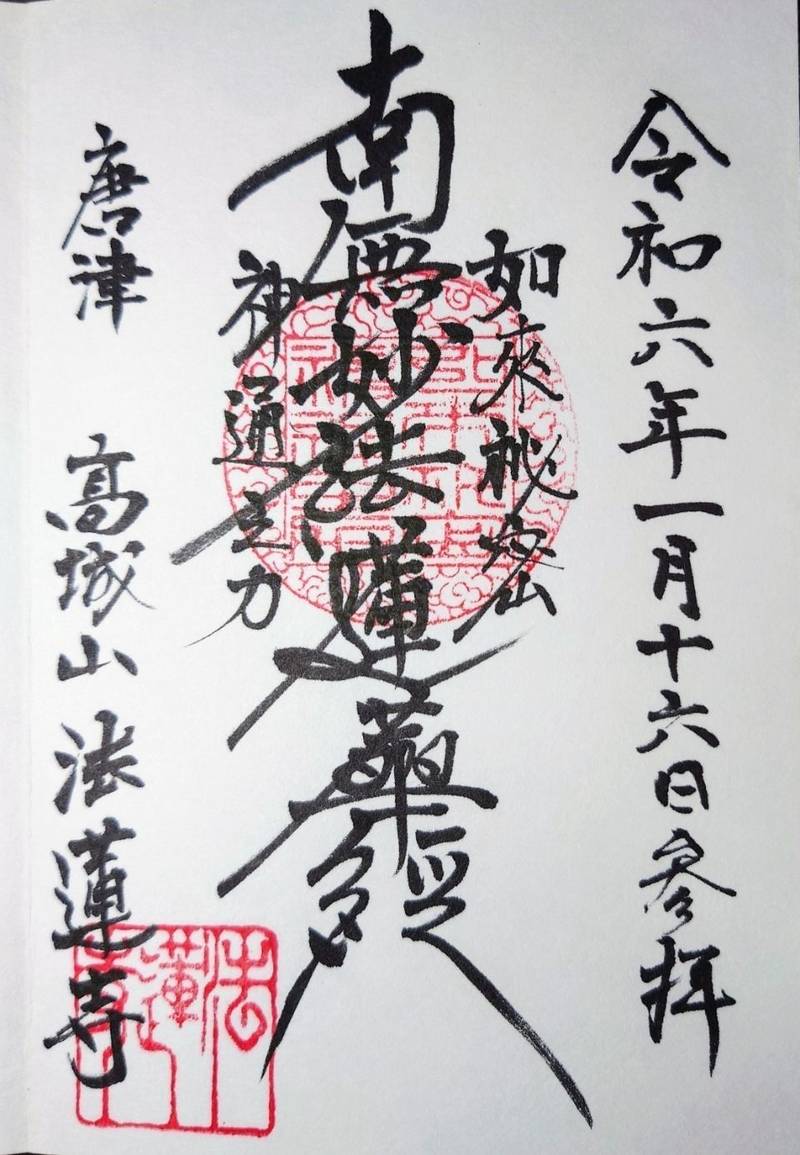 令和六年一月十六日参拝
如来秘密
南無妙法蓮華経
神通之力
唐津 高城山 法蓮寺
法蓮寺